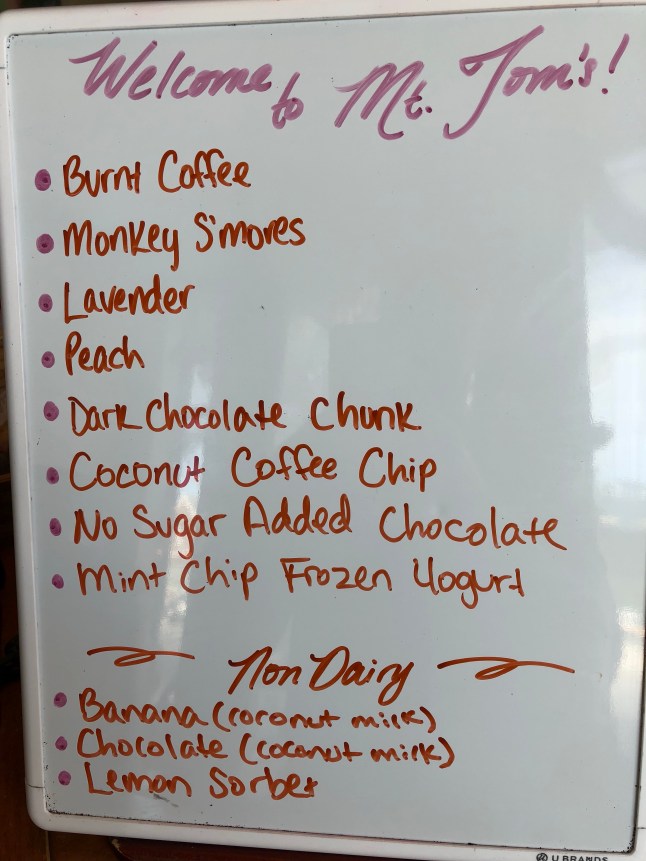 Welcome to Mt. Tom's!
• Burnt Coffee
• Monkey S'mores
• Lavender
• Peach
• Dark Chocolate Chunk
• Coconut Coffee Chip
• No Sugar Added Chocolate
• Mint Chip Frozen Yogurt
Non Dairy
• Banana (coconut milk)
• Chocolate (coconut milk)
• Lemon Sorbet
U BRANDS